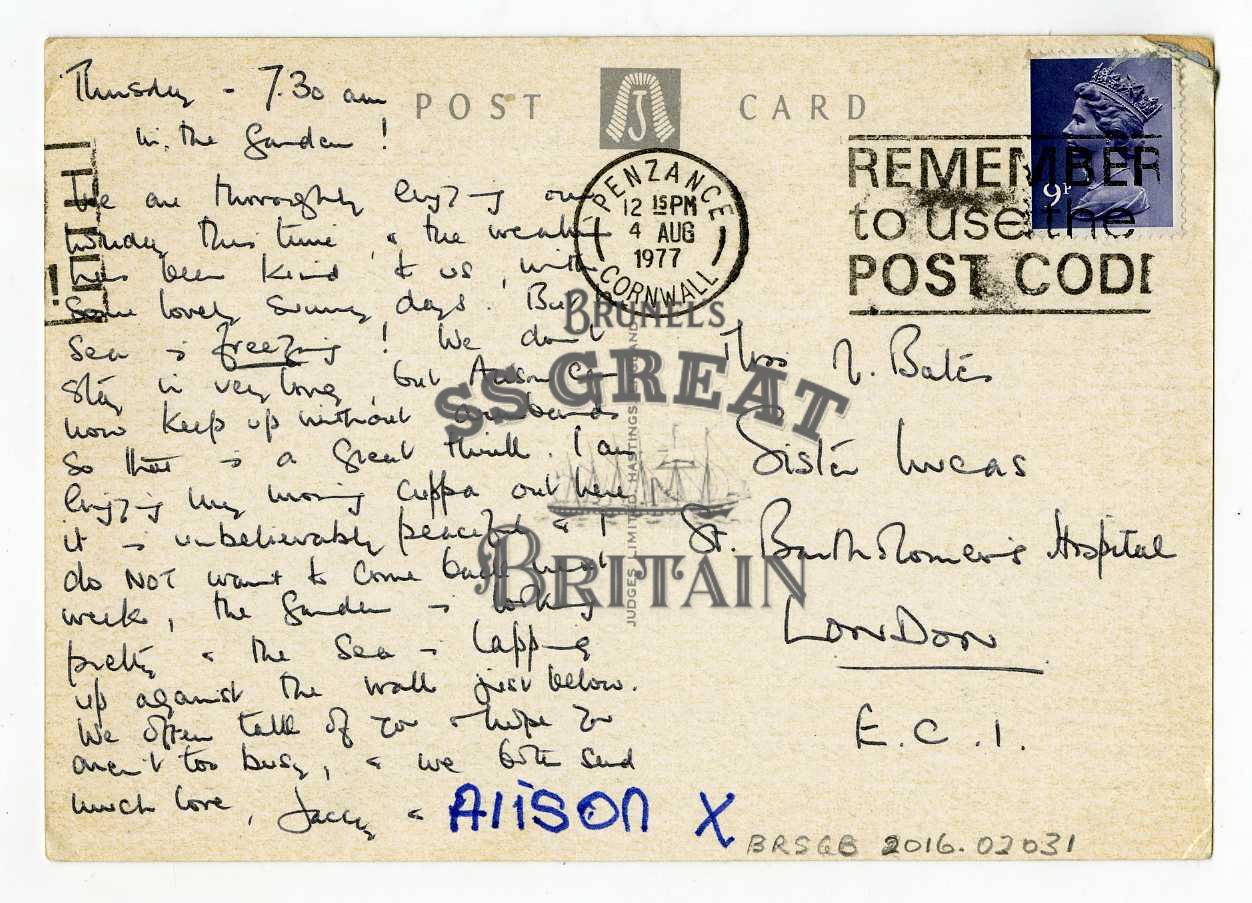 POST CARD
Thursday - 7.30 am
in the Garden!
We are thoroughly enjoying our
holiday this time & the weather
has been kind to us, with
some lovely sunny days. But
sea is freezing! We don't
stay in very long, but Alison can
now keep up without armbands
so that is a great thrill. I am
enjoying my morning cuppa out here
it is unbelievably peaceful & I
do NOT want to come back next
week, the garden is looking
pretty & the sea is lapping
up against the wall just below.
We often talk of you & hope you
aren't too busy, & we both send
much love, Jacey & Alison X
PENZANCE
12 15PM
4 AUG
1977
CORNWALL
REMEMBER
to use the
POST CODE
9P
BRUNEL'S
SS GREAT
BRITAIN
JUDGES LIMITED, HASTINGS, ENGLAND
Bates
Sister Lucas
St. Bartholomew's Hospital
LONDON
E.C.1.
BRSGB 2016.02031